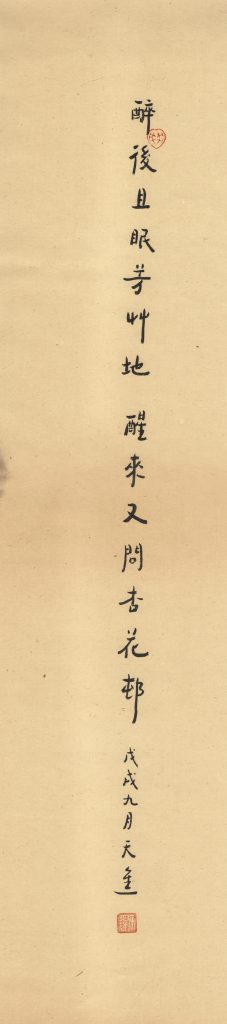 醉後且眠芳艸地 醒來又問杏花邨 戊戌九月天進